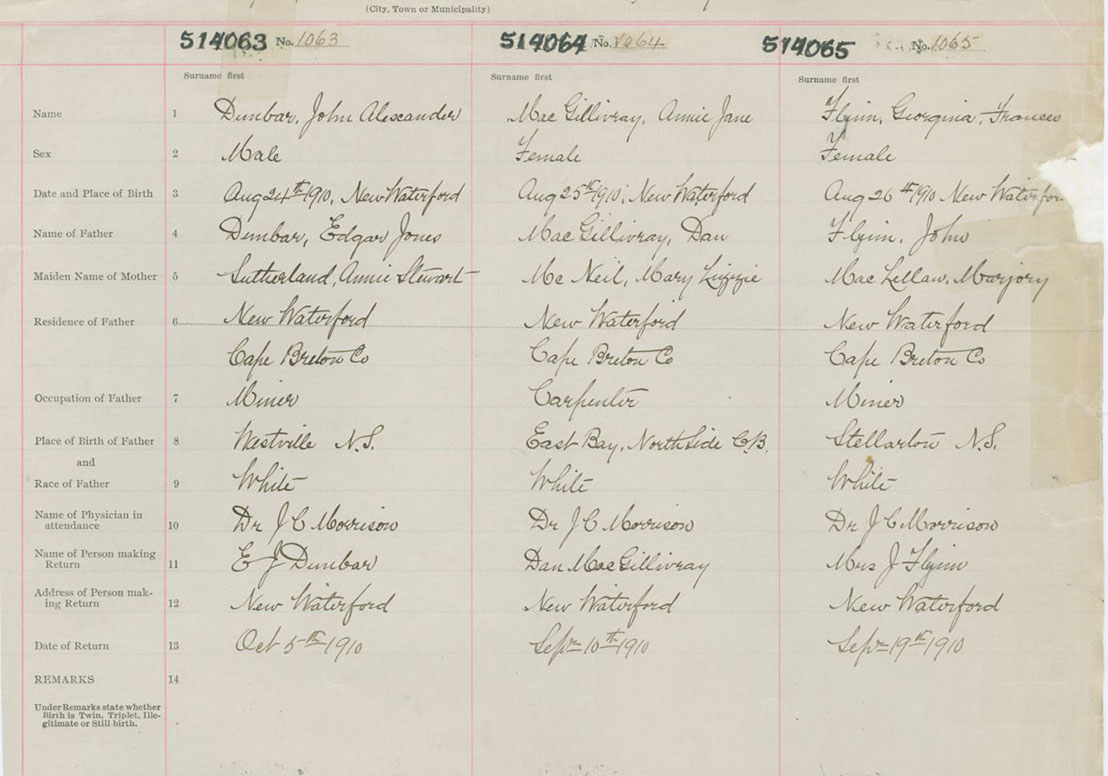 (City, Town or Municipality)
514063 No. 1063 514064 No. 1064 514065 No. 1065
Surname first Surname first Surname first
Name 1 Dunbar, John Alexander Mac Gillivray, Annie Jane Flynn, Georgina, Frances
Sex 2 Male Female Female
Date and Place of Birth 3 Aug 24th 1910, New Waterford Aug 25th 1910, New Waterford Aug 26th 1910 New Waterfor
Name of Father 4 Dunbar, Edgar Jones Mac Gillivray, Dan Flynn, John
Maiden Name of Mother 5 Sutherland, Annie Stewart Mc Neil, Mary Lizzie Mac Lellan, Marjory
Residence of Father 6 New Waterford New Waterford New Waterford
Cape Breton Co Cape Breton Co Cape Breton Co
Occupation of Father 7 Miner Carpenter Miner
Place of Birth of Father 8 Westville N.S. East Bay, North Side C.B. Stellarton N.S.
and
Race of Father 9 White White White
Name of Physician in
attendance 10 Dr J C Morrison Dr J C Morrison Dr J C Morrison
Name of Person making
Return 11 E J Dunbar Dan MacGillivray Mrs J Flynn
Address of Person mak-
ing Return 12 New Waterford New Waterford New Waterford
Date of Return 13 Oct 5th 1910 Sept 10th 1910 Sept 19th 1910
REMARKS 14
Under Remarks state whether
Birth is Twin, Triplet, Ille-
gitimate or Still birth.